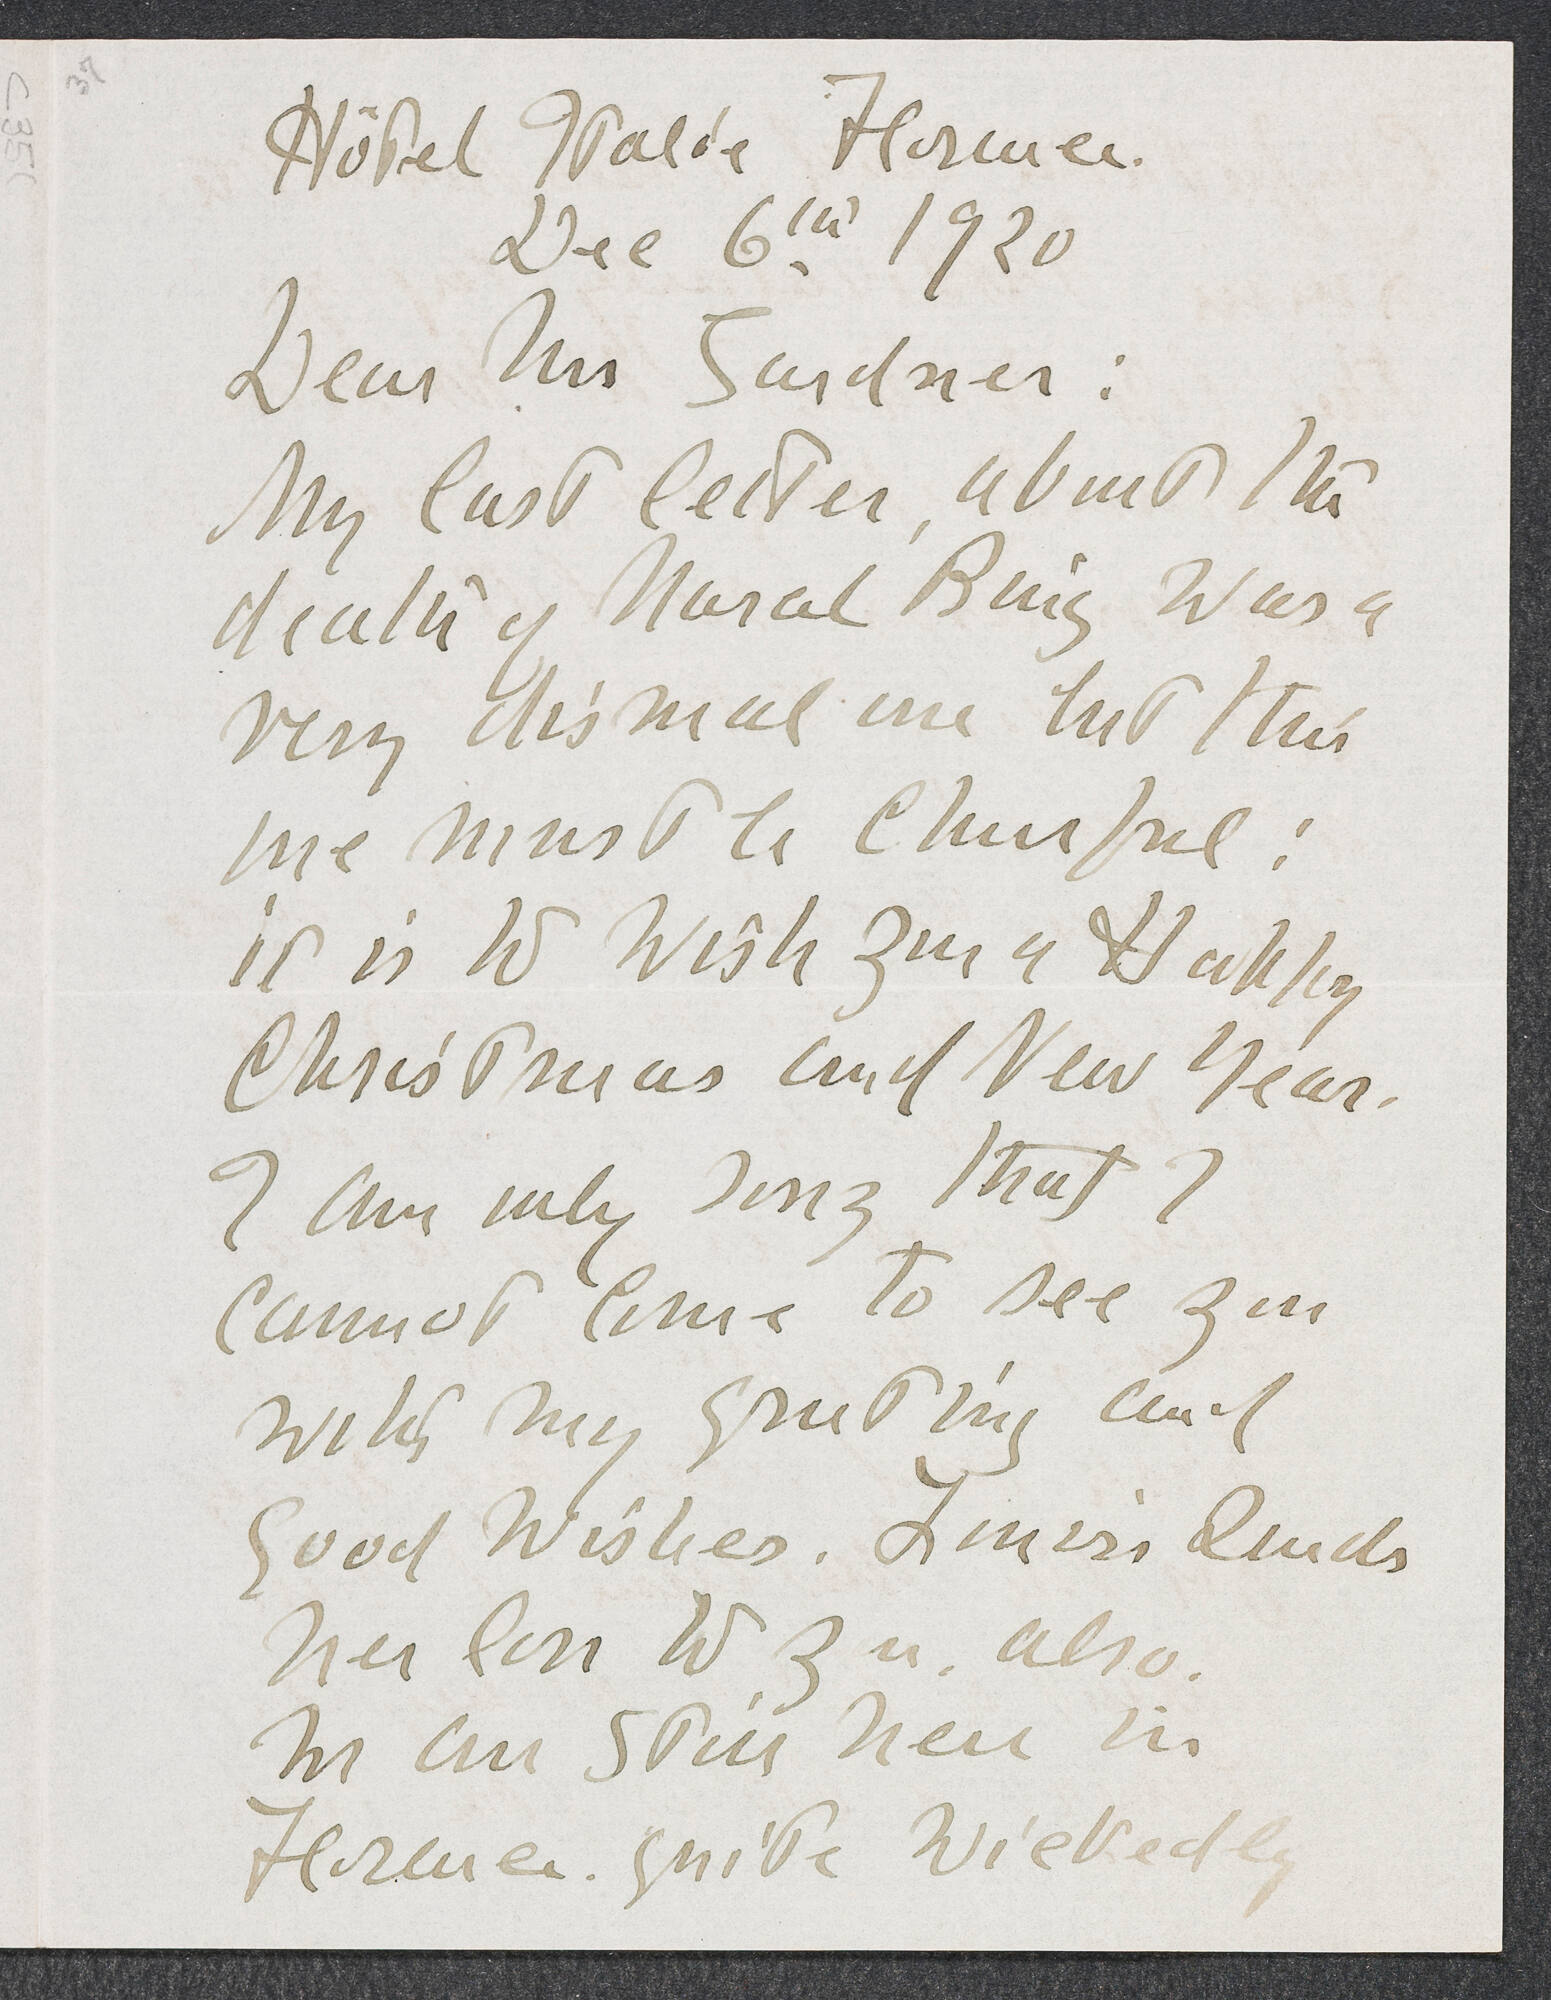 37
Hôtel Italie Florence.
Dec 6th 1920
Dear Mrs Gardner:
My last letter, about the
death of Maral Bing was a
very dismal one but this
one must be cheerful:
it is to wish you a Happy
Christmas and New Year.
I am only sorry that I
cannot come to see you
with my greeting and
good wishes. Louise sends
her love to you. also.
We are still here in
Florence. quite wickedly